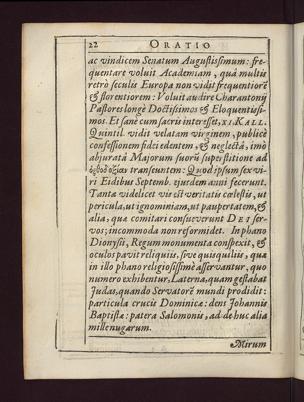 22 ORATIO
ac vindicem Senatum Augustissimum: fre-
quentare voluit Academiam, quâ multis
retrò seculis Europa non vidit frequentiorẽ
& florentiorem: Voluit audire Charantonij
Pastores longè Doctissimos & Eloquentissi-
mos. Et sanè cum sacris interesset, XI. KALL.
Quintil. vidit velatam virginem, publicè
confessionem fidei edentem, & neglectâ, imò
abjuratâ Majorum suorũ superstitione ad
ὀρθοδοξίαν transeuntem: Quod ipsum sex vi-
ri Eidibus Septemb. ejusdem anni fecerunt.
Tanta videlicet vis est veritatis cœlestis, ut
pericula, ut ignominiam, ut paupertatem, &
alia, qua comitari consueverunt DEI ser-
vos; incommoda non reformidet. In phano
Dionysii, Regum monumenta conspexit, &
oculos pavit reliquiis, sive quisquiliis, qua
in illo phano religiosissimè asservantur, quo
numero exhibentur, Laterna, quam gestabat
Judas, quando Servatorẽ mundi prodidit:
particula crucis Dominicæ: dens Johannis
Baptistæ: patera Salomonis, ad-de huc alia
mille nugarum.
Mirum